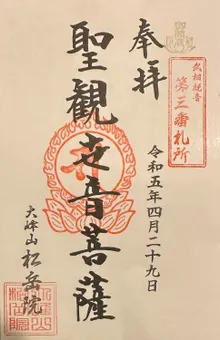 奉拝
第三番札所
令和五年四月二十九日
聖観世音菩薩
大峰山 松岳院